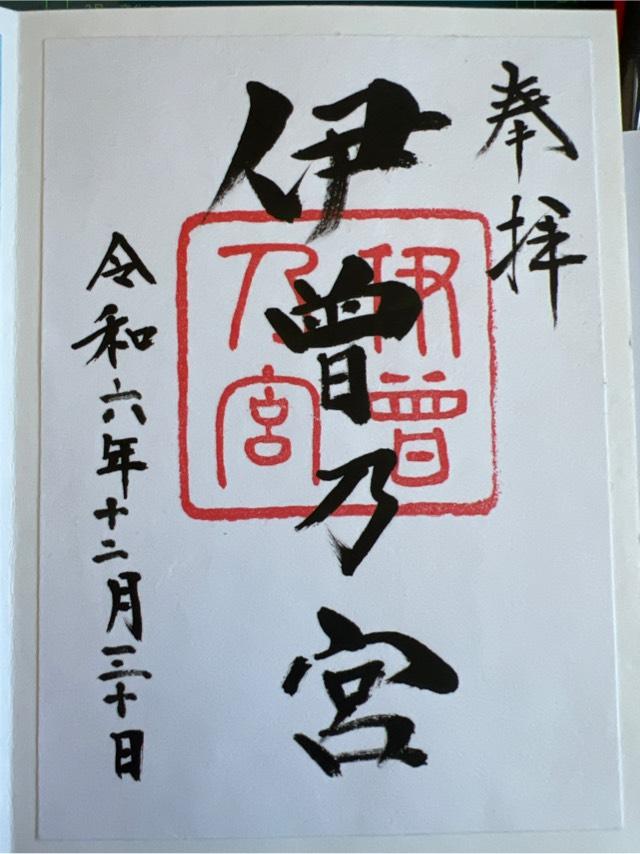 奉拝
伊曽乃宮
伊曽乃宮
令和六年十二月三十日